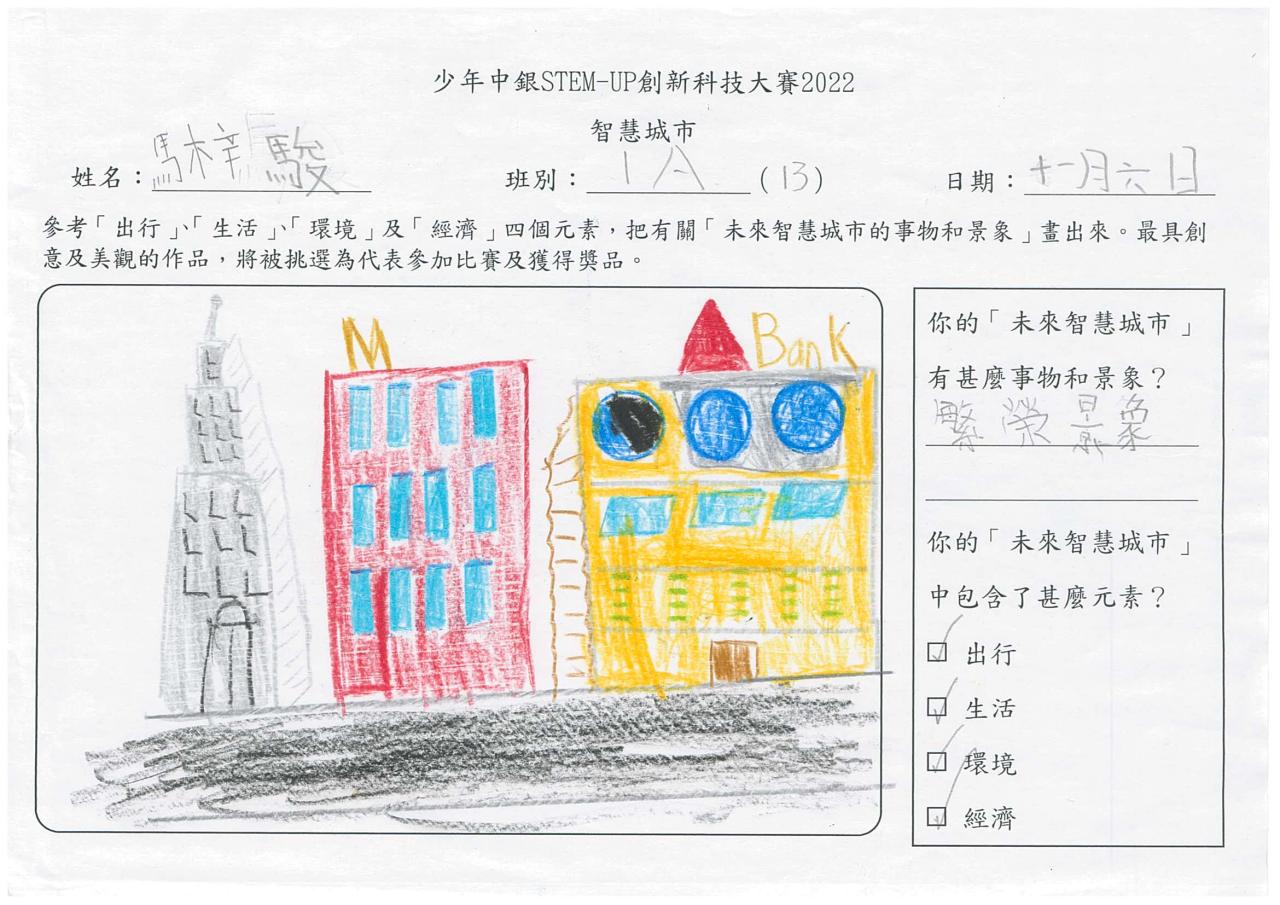 少年中銀STEM-UP創新科技大賽2022
智慧城市
姓名：馬梓駿 班別：1A (13) 日期：十一月六日
參考「出行」、「生活」、「環境」及「經濟」四個元素，把有關「未來智慧城市的事物和景象」畫出來。最具創
意及美觀的作品，將被挑選為代表參加比賽及獲得獎品。
M
Bank
你的「未來智慧城市」
有甚麼事物和景象？
繁榮景象
你的「未來智慧城市」
中包含了甚麼元素？
出行
生活
環境
經濟